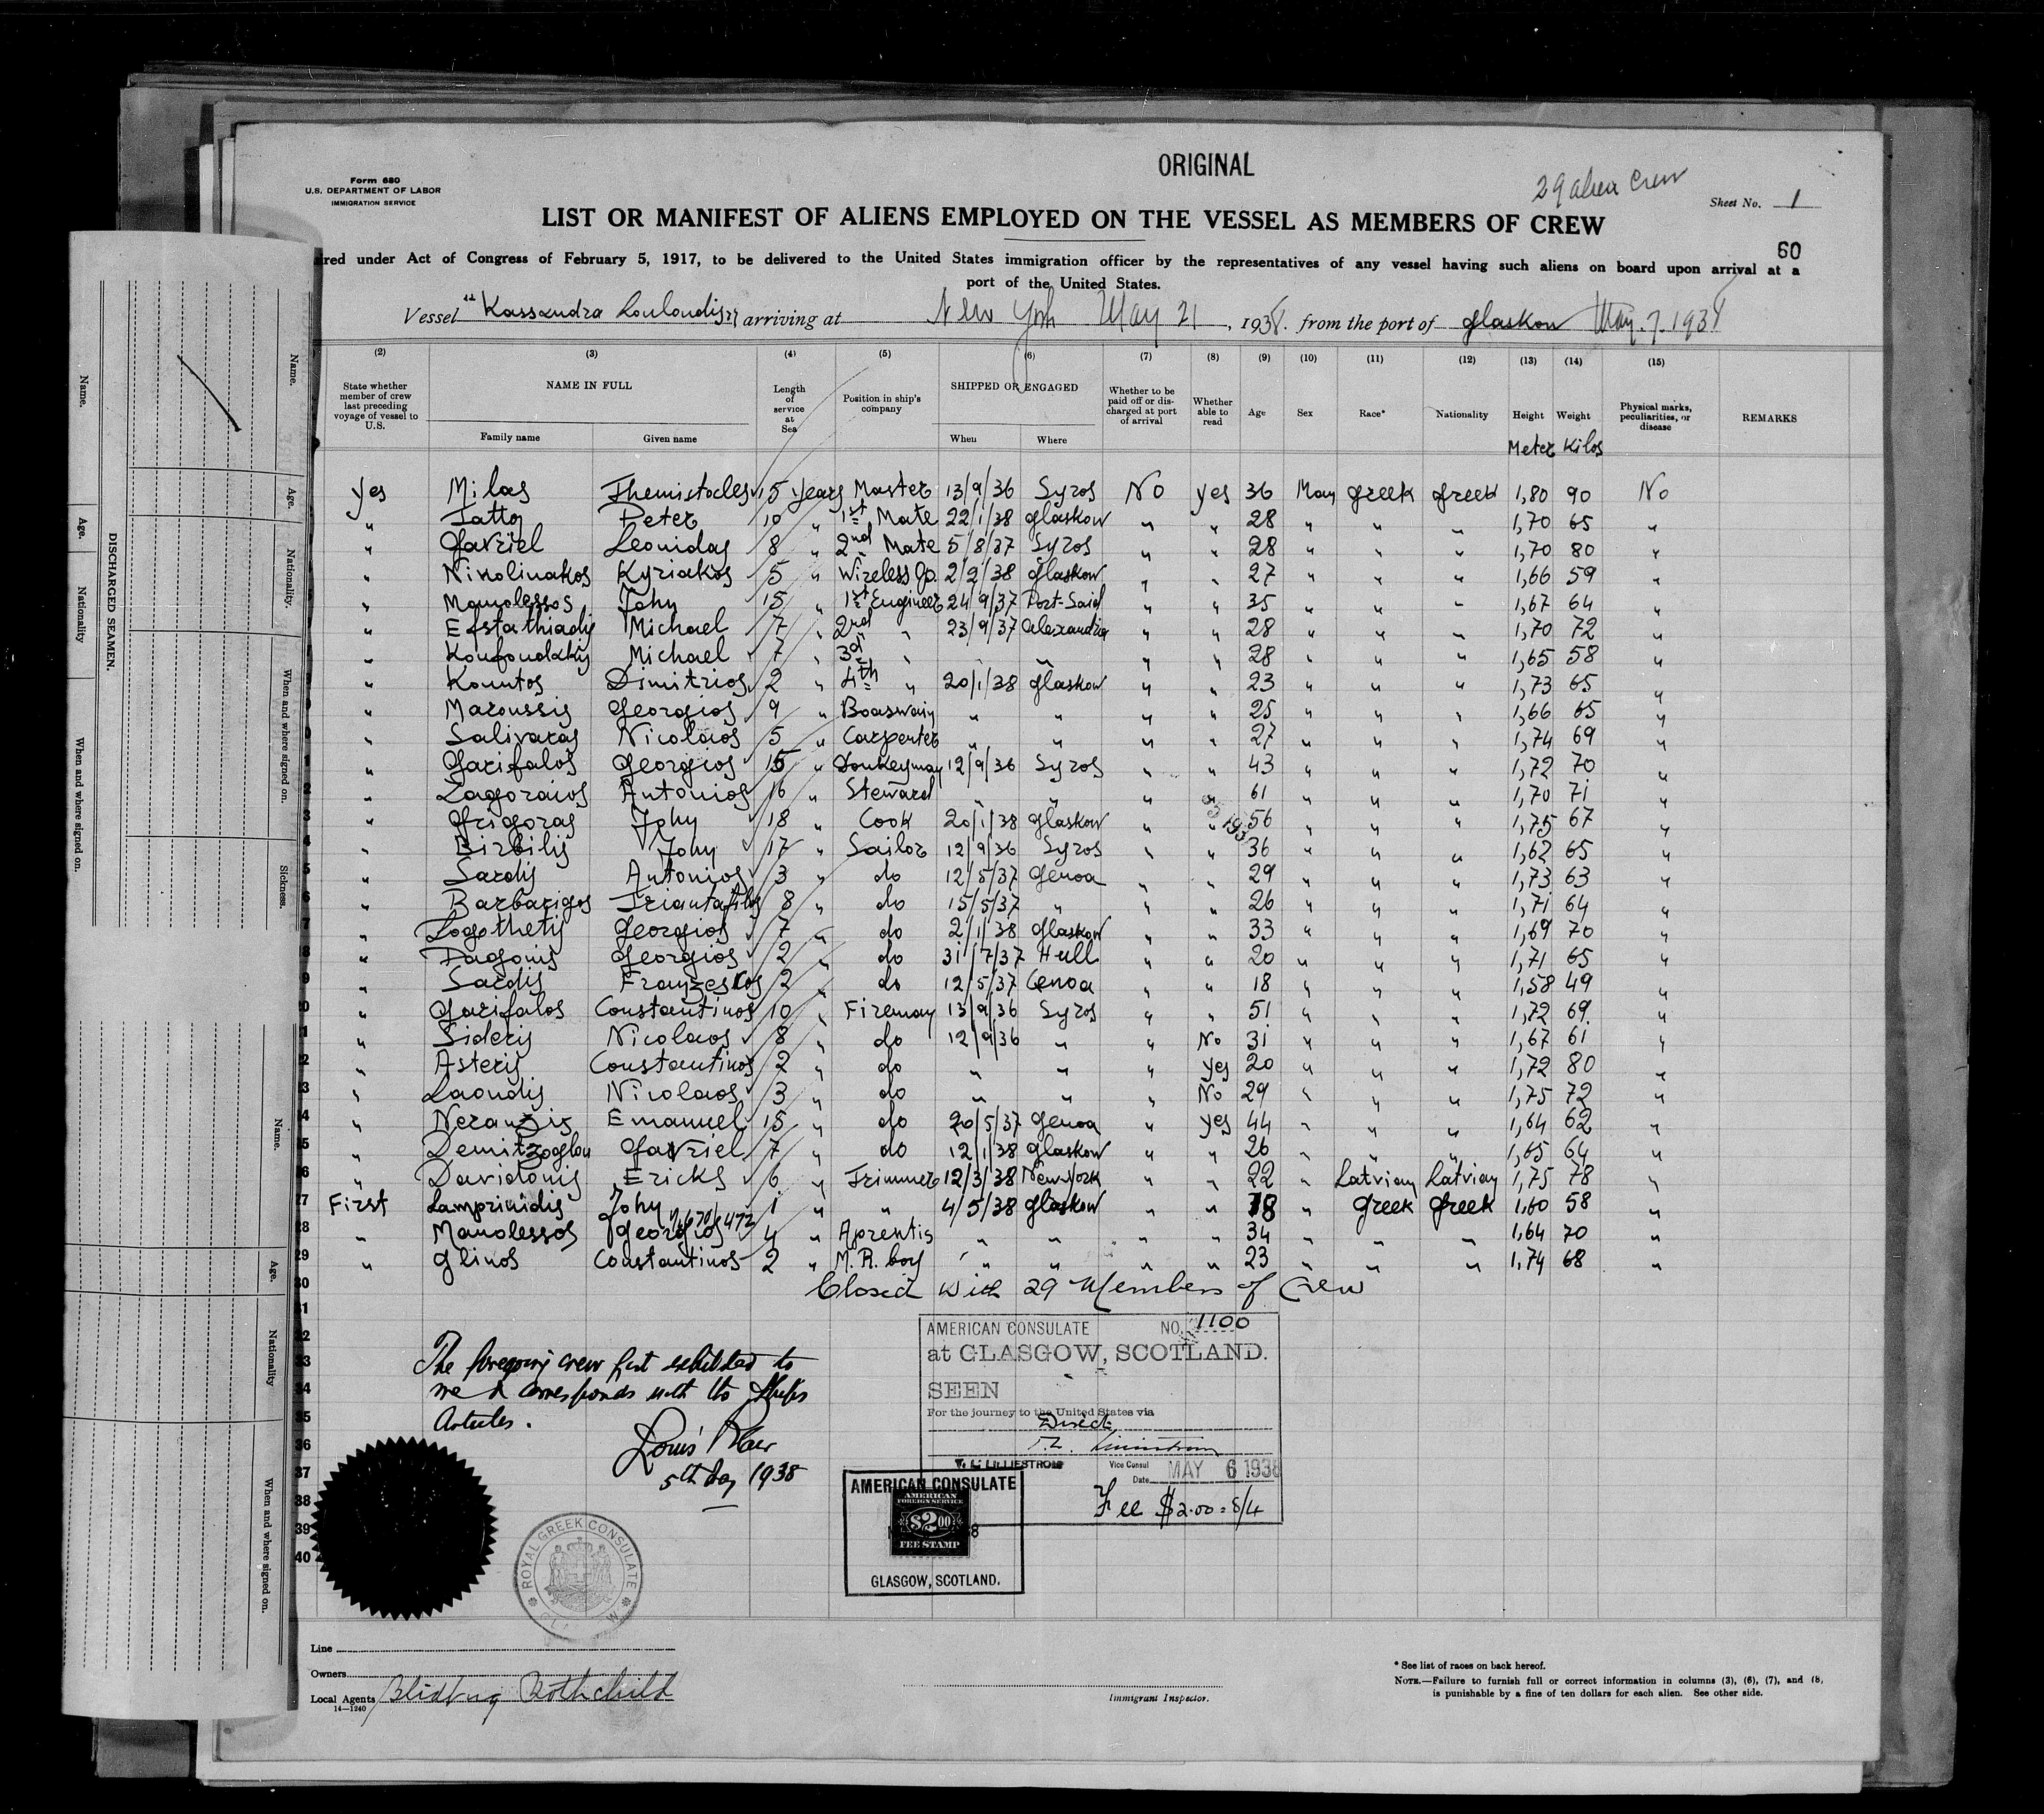 ORIGINAL
29 alien Crew
Form 680
U.S. DEPARTMENT OF LABOR
IMMIGRATION SERVICE
Sheet No. 1
LIST OR MANIFEST OF ALIENS EMPLOYED ON THE VESSEL AS MEMBERS OF CREW
60
ired under Act of Congress of February 5, 1917, to be delivered to the United States immigration officer by the representatives of any vessel having such aliens on board upon arrival at a
port of the United States.
Vessel "Kassandra Louloudis" arriving at New York May 21, 1938. from the port of Glaskow May. 7. 1938
(2) (3) (4) (5) (6) (7) (8) (9) (10) (11) (12) (13) (14) (15)
State whether member of crew last preceding voyage of vessel to U.S. NAME IN FULL Length of service at Sea Position in ship's company SHIPPED OR ENGAGED Whether to be paid off or discharged at port of arrival Whether able to read Age Sex Race* Nationality Height Weight Physical marks, peculiarities, or disease REMARKS
Family name Given name When Where
Meter Kilos
Yes Milas Themistocles 15 Years Master 13/9/36 Syros No Yes 36 Man Greek Greek 1,80 90 No
" Tattos Peter 10 " 1st Mate 22/1/38 Glaskow " " 28 " " " 1,70 65 "
" Gavriel Leonidas 8 " 2nd Mate 5/8/37 Syros " " 28 " " " 1,70 80 "
" Nikolinakos Kyriakos 5 " Wireless Op. 2/2/38 Glaskow " " 27 " " " 1,66 59 "
" Manolessos John 15 " 1st Engineer 24/9/37 Port-Said " " 35 " " " 1,67 64 "
" Efstathiadis Michael 7 " 2nd " 23/9/37 Alexandria " " 28 " " " 1,70 72 "
" Koufoudakis Michael 7 " 3d " " " " " 28 " " " 1,65 58 "
" Kountos Dimitrios 2 " 4th " 20/1/38 Glaskow " " 23 " " " 1,73 65 "
" Maroussis Georgios 9 " Boaswain " " " " 25 " " " 1,66 65 "
" Salivaras Nicolaos 5 " Carpenter " " " " 27 " " " 1,74 69 "
" Garifalos Georgios 15 " Donkeyman 12/9/36 Syros " " 43 " " " 1,72 70 "
" Zagoraios Antonios 16 " Steward " " " " 61 " " " 1,70 71 "
" Grigoras John 18 " Cook 20/1/38 Glaskow " " 56 " " " 1,75 67 "
" Birbilis John 17 " Sailor 12/9/36 Syros " " 36 " " " 1,62 65 "
" Sardis Antonios 3 " do 12/5/37 Genoa " " 29 " " " 1,73 63 "
" Barbarigos Triantafilos 8 " do 15/5/37 " " " 26 " " " 1,71 64 "
" Logothetis Georgios 7 " do 2/1/38 Glaskow " " 33 " " " 1,69 70 "
" Dagonis Georgios 2 " do 31/7/37 Hull " " 20 " " " 1,71 65 "
" Sardis Franzeskos 2 " do 12/5/37 Genoa " " 18 " " " 1,58 49 "
" Garifalos Constantinos 10 " Fireman 13/9/36 Syros " " 51 " " " 1,72 69 "
" Sideris Nicolaos 8 " do 12/9/36 " " No 31 " " " 1,67 61 "
" Asteris Constantinos 2 " do " " " Yes 20 " " " 1,72 80 "
" Laoudis Nicolaos 3 " do " " " No 29 " " " 1,75 72 "
" Neranzis Emanuel 15 " do 20/5/37 Genoa " Yes 44 " " " 1,64 62 "
" Demitzoglou Gavriel 7 " do 12/1/38 Glaskow " " 26 " " " 1,65 64 "
" Davidonis Ericks 6 " Trimmer 12/3/38 New-York " " 22 " Latvian Latvian 1,75 78 "
First Lamprinidis John 1 " " 4/5/38 Glaskow " " 18 " Greek Greek 1,60 58 "
" Manolessos Georgios 4 " Aprentis " " " " 34 " " " 1,64 70 "
" Glinos Constantinos 2 " M. R. boy " " " " 23 " " " 1,74 68 "
Closed with 29 Members of Crew
The foregoing crew list exhibited to
me & corresponds with the Ship's
Articles.
5th May 1938
AMERICAN CONSULATE NO. 1100
at GLASGOW, SCOTLAND.
SEEN
For the journey to the United States via
Direct
Vice Consul
Date MAY 6 1938
Fee $2.00 = 8/4
AMERICAN CONSULATE
AMERICAN
FOREIGN SERVICE
$2.00
FEE STAMP
GLASGOW, SCOTLAND.
ROYAL GREEK CONSULATE
32
33
34
35
36
37
38
39
40
Line
Owners
Local Agents
14—1240
Immigrant Inspector.
* See list of races on back hereof.
NOTE.—Failure to furnish full or correct information in columns (3), (6), (7), and (8,
is punishable by a fine of ten dollars for each alien. See other side.
DISCHARGED SEAMEN.
Name.
Age.
Nationality
When and where signed on.
Name.
Age.
Nationality.
When and where signed on.
Sickness.
Name.
Age.
Nationality
When and where signed on.